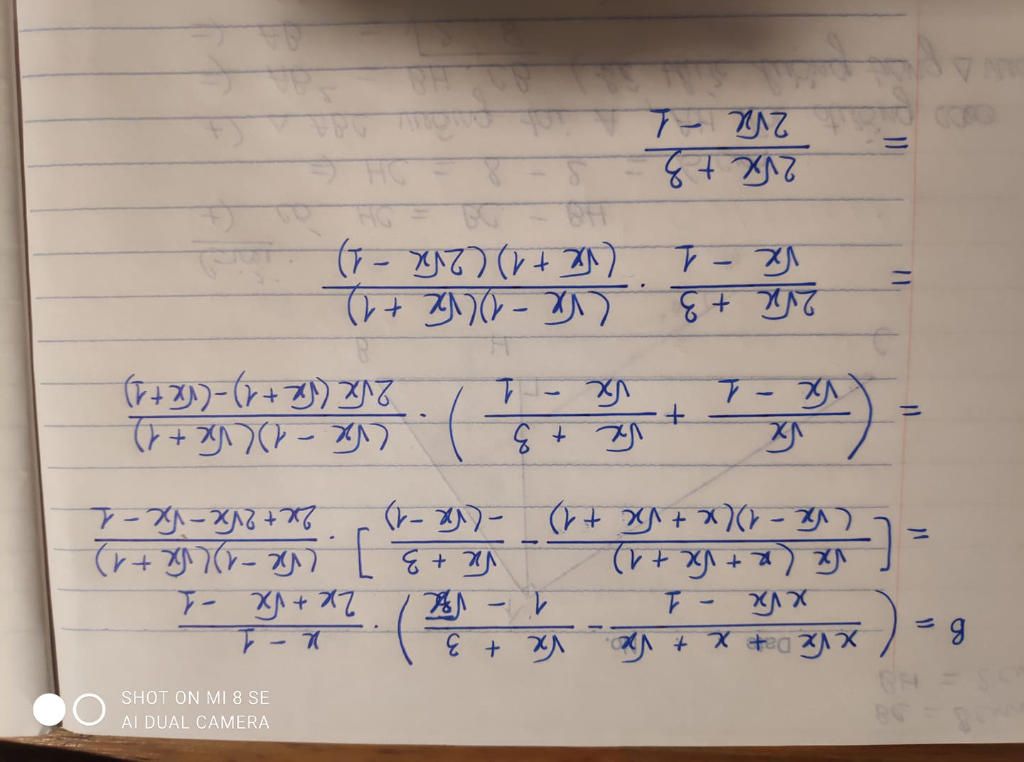 B = ( (x√x + x + √x)/(x√x - 1) - (√x + 3)/(1 - √x) ) . (x - 1)/(2x + √x - 1)
= [ √x (x + √x + 1)/(√x - 1)(x + √x + 1) - (√x + 3)/-(√x - 1) ] . (√x - 1)(√x + 1)/(2x + 2√x - √x - 1)
= ( √x/(√x - 1) + (√x + 3)/(√x - 1) ) . (√x - 1)(√x + 1)/(2√x (√x + 1) - (√x + 1))
= (2√x + 3)/(√x - 1) . (√x - 1)(√x + 1)/(√x + 1)(2√x - 1)
= (2√x + 3)/(2√x - 1)
SHOT ON MI 8 SE
AI DUAL CAMERA